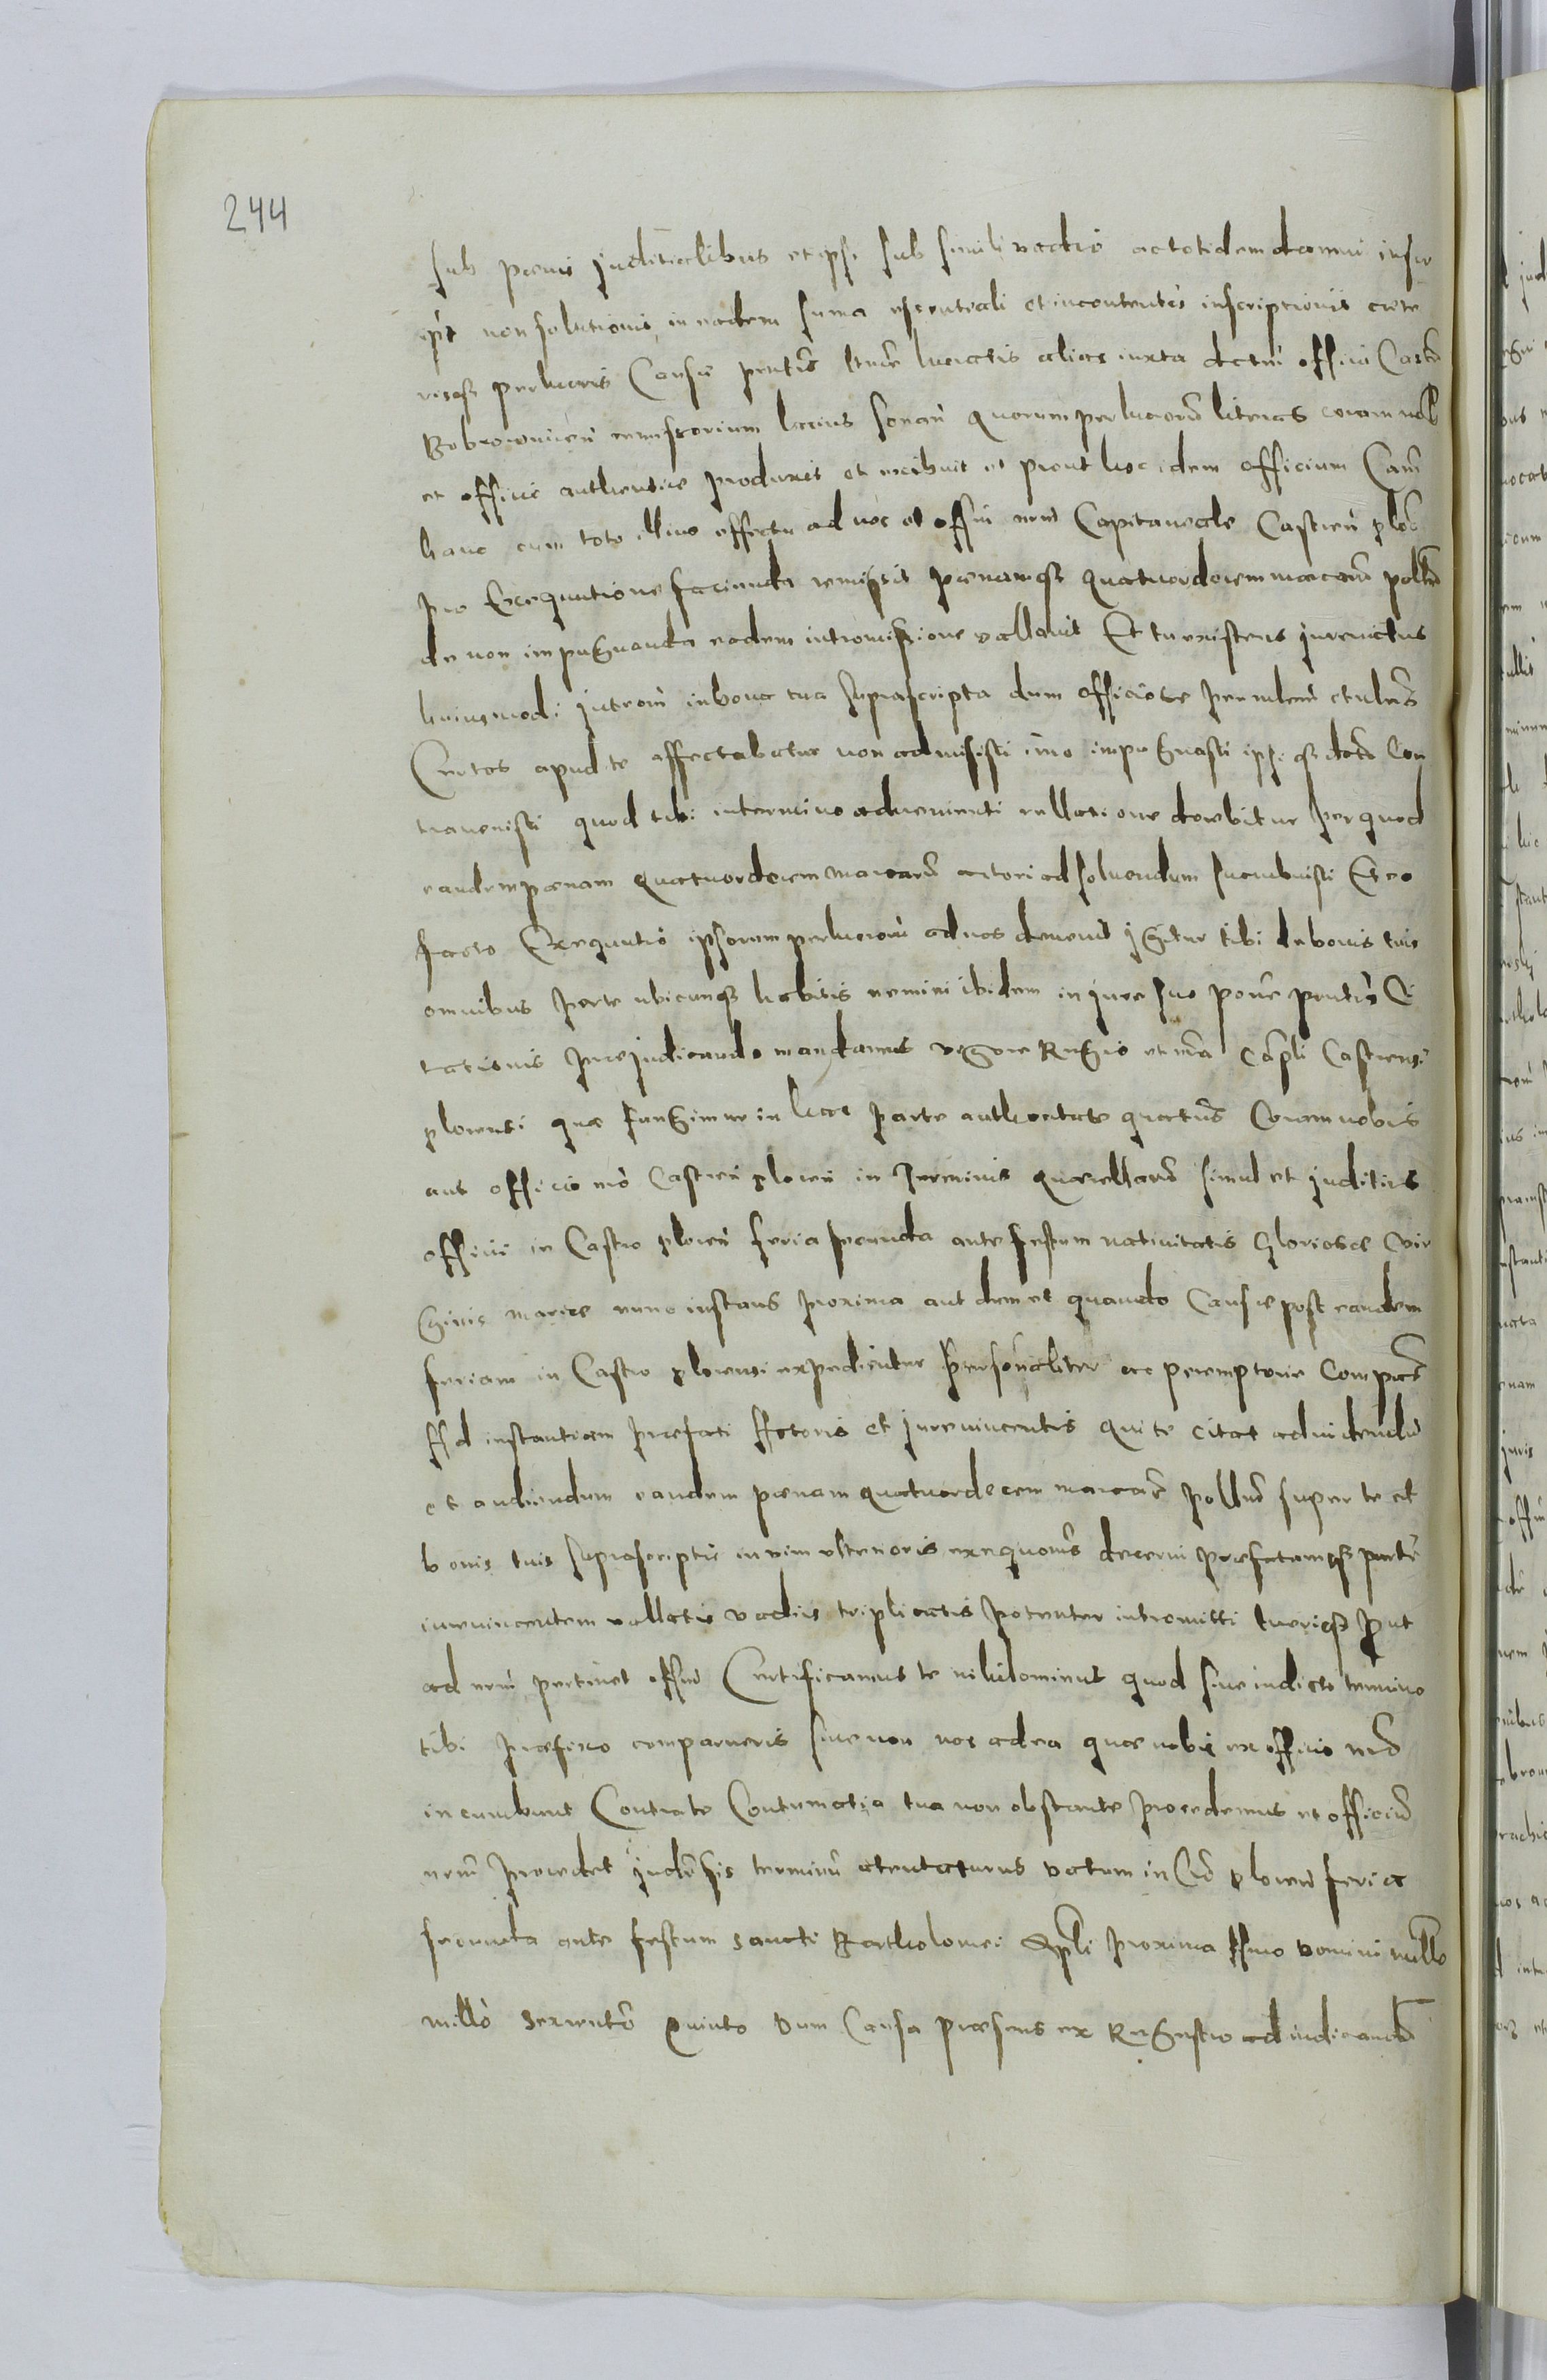 244
sub pœnis juditialibus et ipse sub simili vadio ac totidem damni insu
per non solutionis in eadem suma essentiali et in contentis inscriptionis cæte
risq perlucris Causæ pentis luctatis alias iuxta dctm officii Castr
Bobrownicen remissorium latius sonan quorum perlucrorũ literas coram nob
et officio authentice produxit et exibuit et prout hoc idem officium Cam
hanc cum toto illius effectu ad nos et offm nrm Capitaneale Castren ploc
pro Exequutione facienda remisit pœnamq quatuordecem marcarũ pollũ
de non impugnanda eadem intromissione vallavit Et tu existens jurevictus
huiusmodi introm in bona tua suprascripta dum officiose per ministerialem et nobiles
Certos apud te affectabatur non admisisti imo impugnasti ipsiq
travenisti quod tibi in termino advenienti rellatione docebitur per quod
eandem pœnam quatuordecem marcarũ actori ad solvendum sucubuisti Et eo
facto Exequutio ipsorum perlucrorũ ad nos devenit jgitur tibi de bonis tuis
omnibus parte ubicunq habitis nemini ibidem in jure suo pone pentis Ci
tationis præjudicando mandamus vigore Regio et nra Capli Castrensi
plocensi qua fungimur in hac parte authoritate quatus Coram nobis
aut officio nro Castren plocen in Terminis quærellarũ simul et juditiis
officii in Castro plocen feria secunda ante festum nativitatis Gloriosæ Vir
ginis mariæ nunc instans proxima aut dum et quando Causæ post eandem
feriam in Castro plocensi expedientur Personaliter ac peremptorie Compars
Ad instantiam præfati Actoris et jurevincentis qui te citat ad videndũ
et audiendum eandem pœnam quatuordecem marcarũ pollũ super te et
bonis tuis suprascriptis in vim ulterioris exequonis decerni præfatamq parte
iurevincentem vallatis vadiis triplicatis potenter intromitti tueriq put
ad nrm pertinet offm Certificamus te nihilominus quod sive indicto termino
tibi præfixo comparueris sive non nos ad ea quæ nobis ex officio nro
incumbunt Contra te Contumatia tua non obstante procedemus et officiũ
nrm procedet judtis terminũ atentaturus Datum in Cro plocen feria
secunda ante festum sancti Bartholomei Apli proxima Anno Domini millo
millo sexcento quinto Dum Causa præsens ex Regestro ad iudicandũ